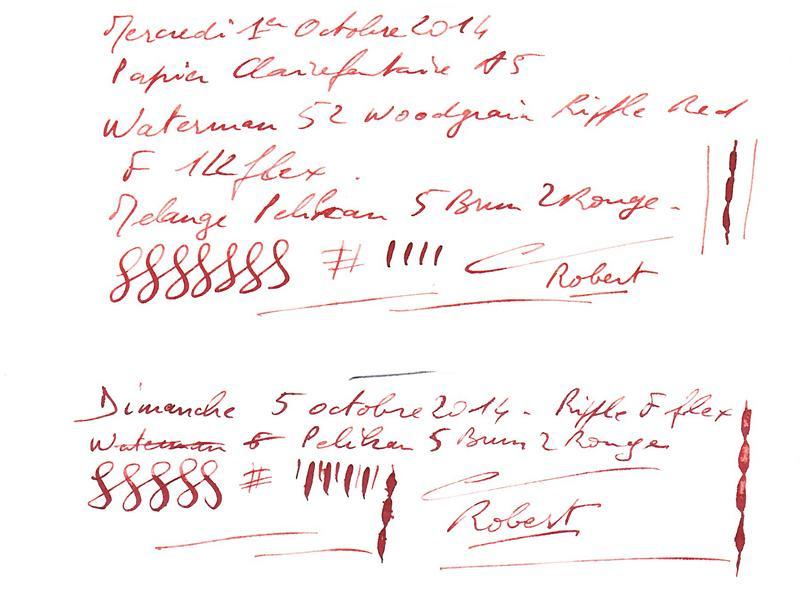 Mercredi 1er Octobre 2014
Papier Clairefontaire A5
Waterman 52 Woodgrain Riffle Red
F 1/2 flex.
Melange Pelikan 5 Brun 2 Rouge.
# Robert
Dimanche 5 octobre 2014. Riffle F flex
Waterman F Pelikan 5 Brun 2 Rouge
# Robert